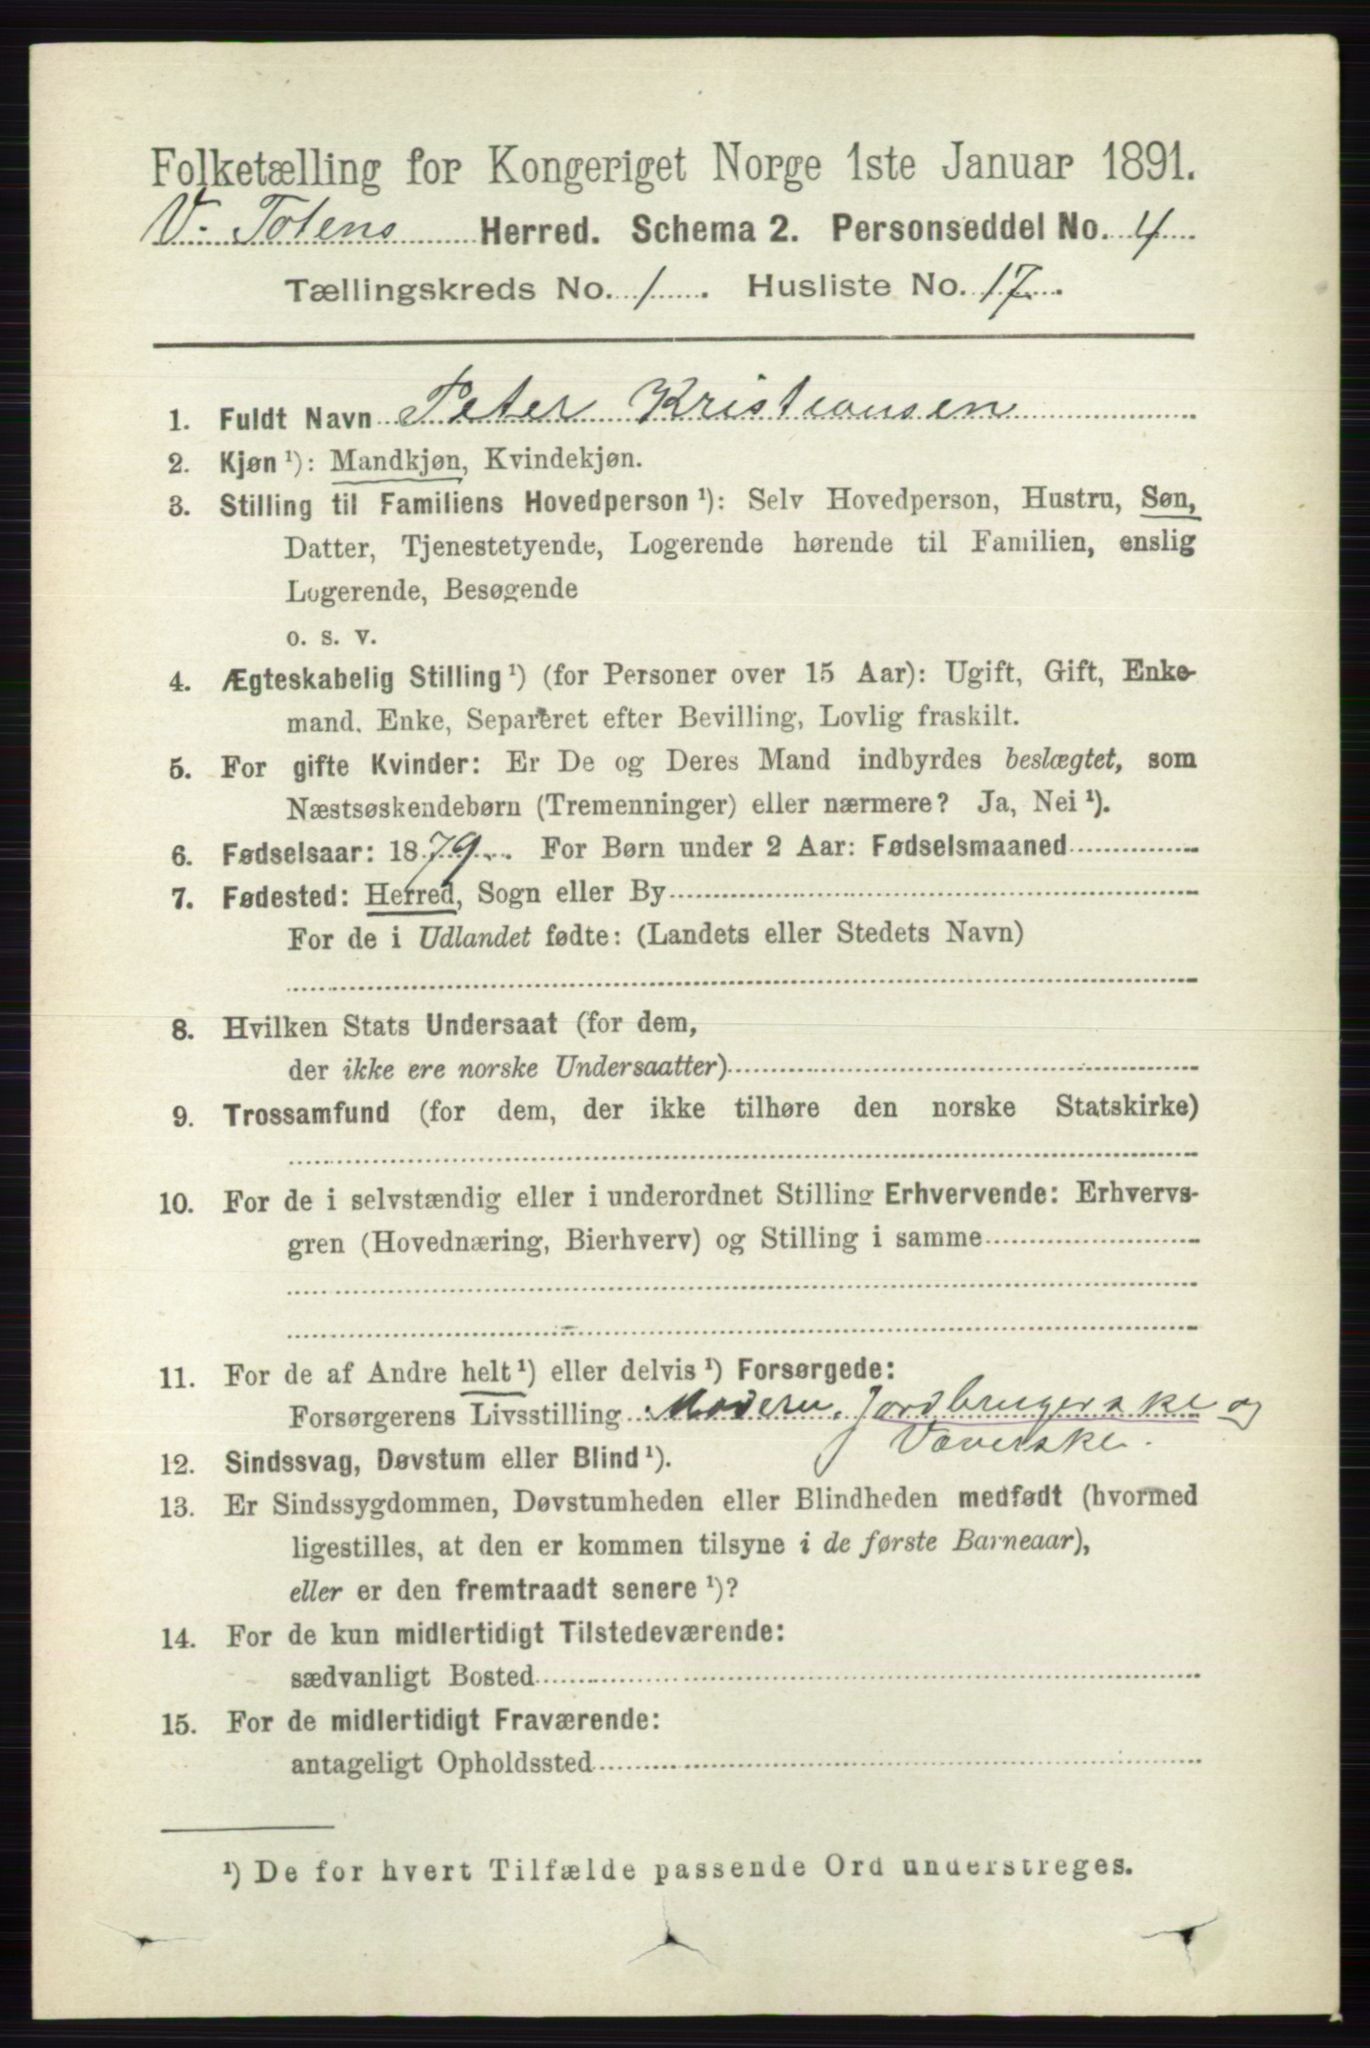 Folketælling for Kongeriget Norge 1ste Januar 1891.
V. Totens Herred. Schema 2. Personseddel No. 4
Tællingskreds No. 1. Husliste No. 17.
1. Fuldt Navn Peter Kristiansen
2. Kjøn ¹): Mandkjøn, Kvindekjøn.
3. Stilling til Familiens Hovedperson ¹): Selv Hovedperson, Hustru, Søn,
Datter, Tjenestetyende, Logerende hørende til Familien, enslig
Logerende, Besøgende
o. s. v.
4. Ægteskabelig Stilling ¹) (for Personer over 15 Aar): Ugift, Gift, Enke-
mand, Enke, Separeret efter Bevilling, Lovlig fraskilt.
5. For gifte Kvinder: Er De og Deres Mand indbyrdes beslægtet, som
Næstsøskendebørn (Tremenninger) eller nærmere? Ja, Nei ¹).
6. Fødselsaar: 1879. For Børn under 2 Aar: Fødselsmaaned
7. Fødested: Herred, Sogn eller By
For de i Udlandet fødte: (Landets eller Stedets Navn)
8. Hvilken Stats Undersaat (for dem,
der ikke ere norske Undersaatter)
9. Trossamfund (for dem, der ikke tilhøre den norske Statskirke)
10. For de i selvstændig eller i underordnet Stilling Erhvervende: Erhvervs-
gren (Hovednæring, Bierhverv) og Stilling i samme
11. For de af Andre helt ¹) eller delvis ¹) Forsørgede:
Forsørgerens Livsstilling Modern. Jordbrugerske og
Væverske.
12. Sindssvag, Døvstum eller Blind ¹).
13. Er Sindssygdommen, Døvstumheden eller Blindheden medfødt (hvormed
ligestilles, at den er kommen tilsyne i de første Barneaar),
eller er den fremtraadt senere ¹)?
14. For de kun midlertidigt Tilstedeværende:
sædvanligt Bosted
15. For de midlertidigt Fraværende:
antageligt Opholdssted
¹) De for hvert Tilfælde passende Ord understreges.